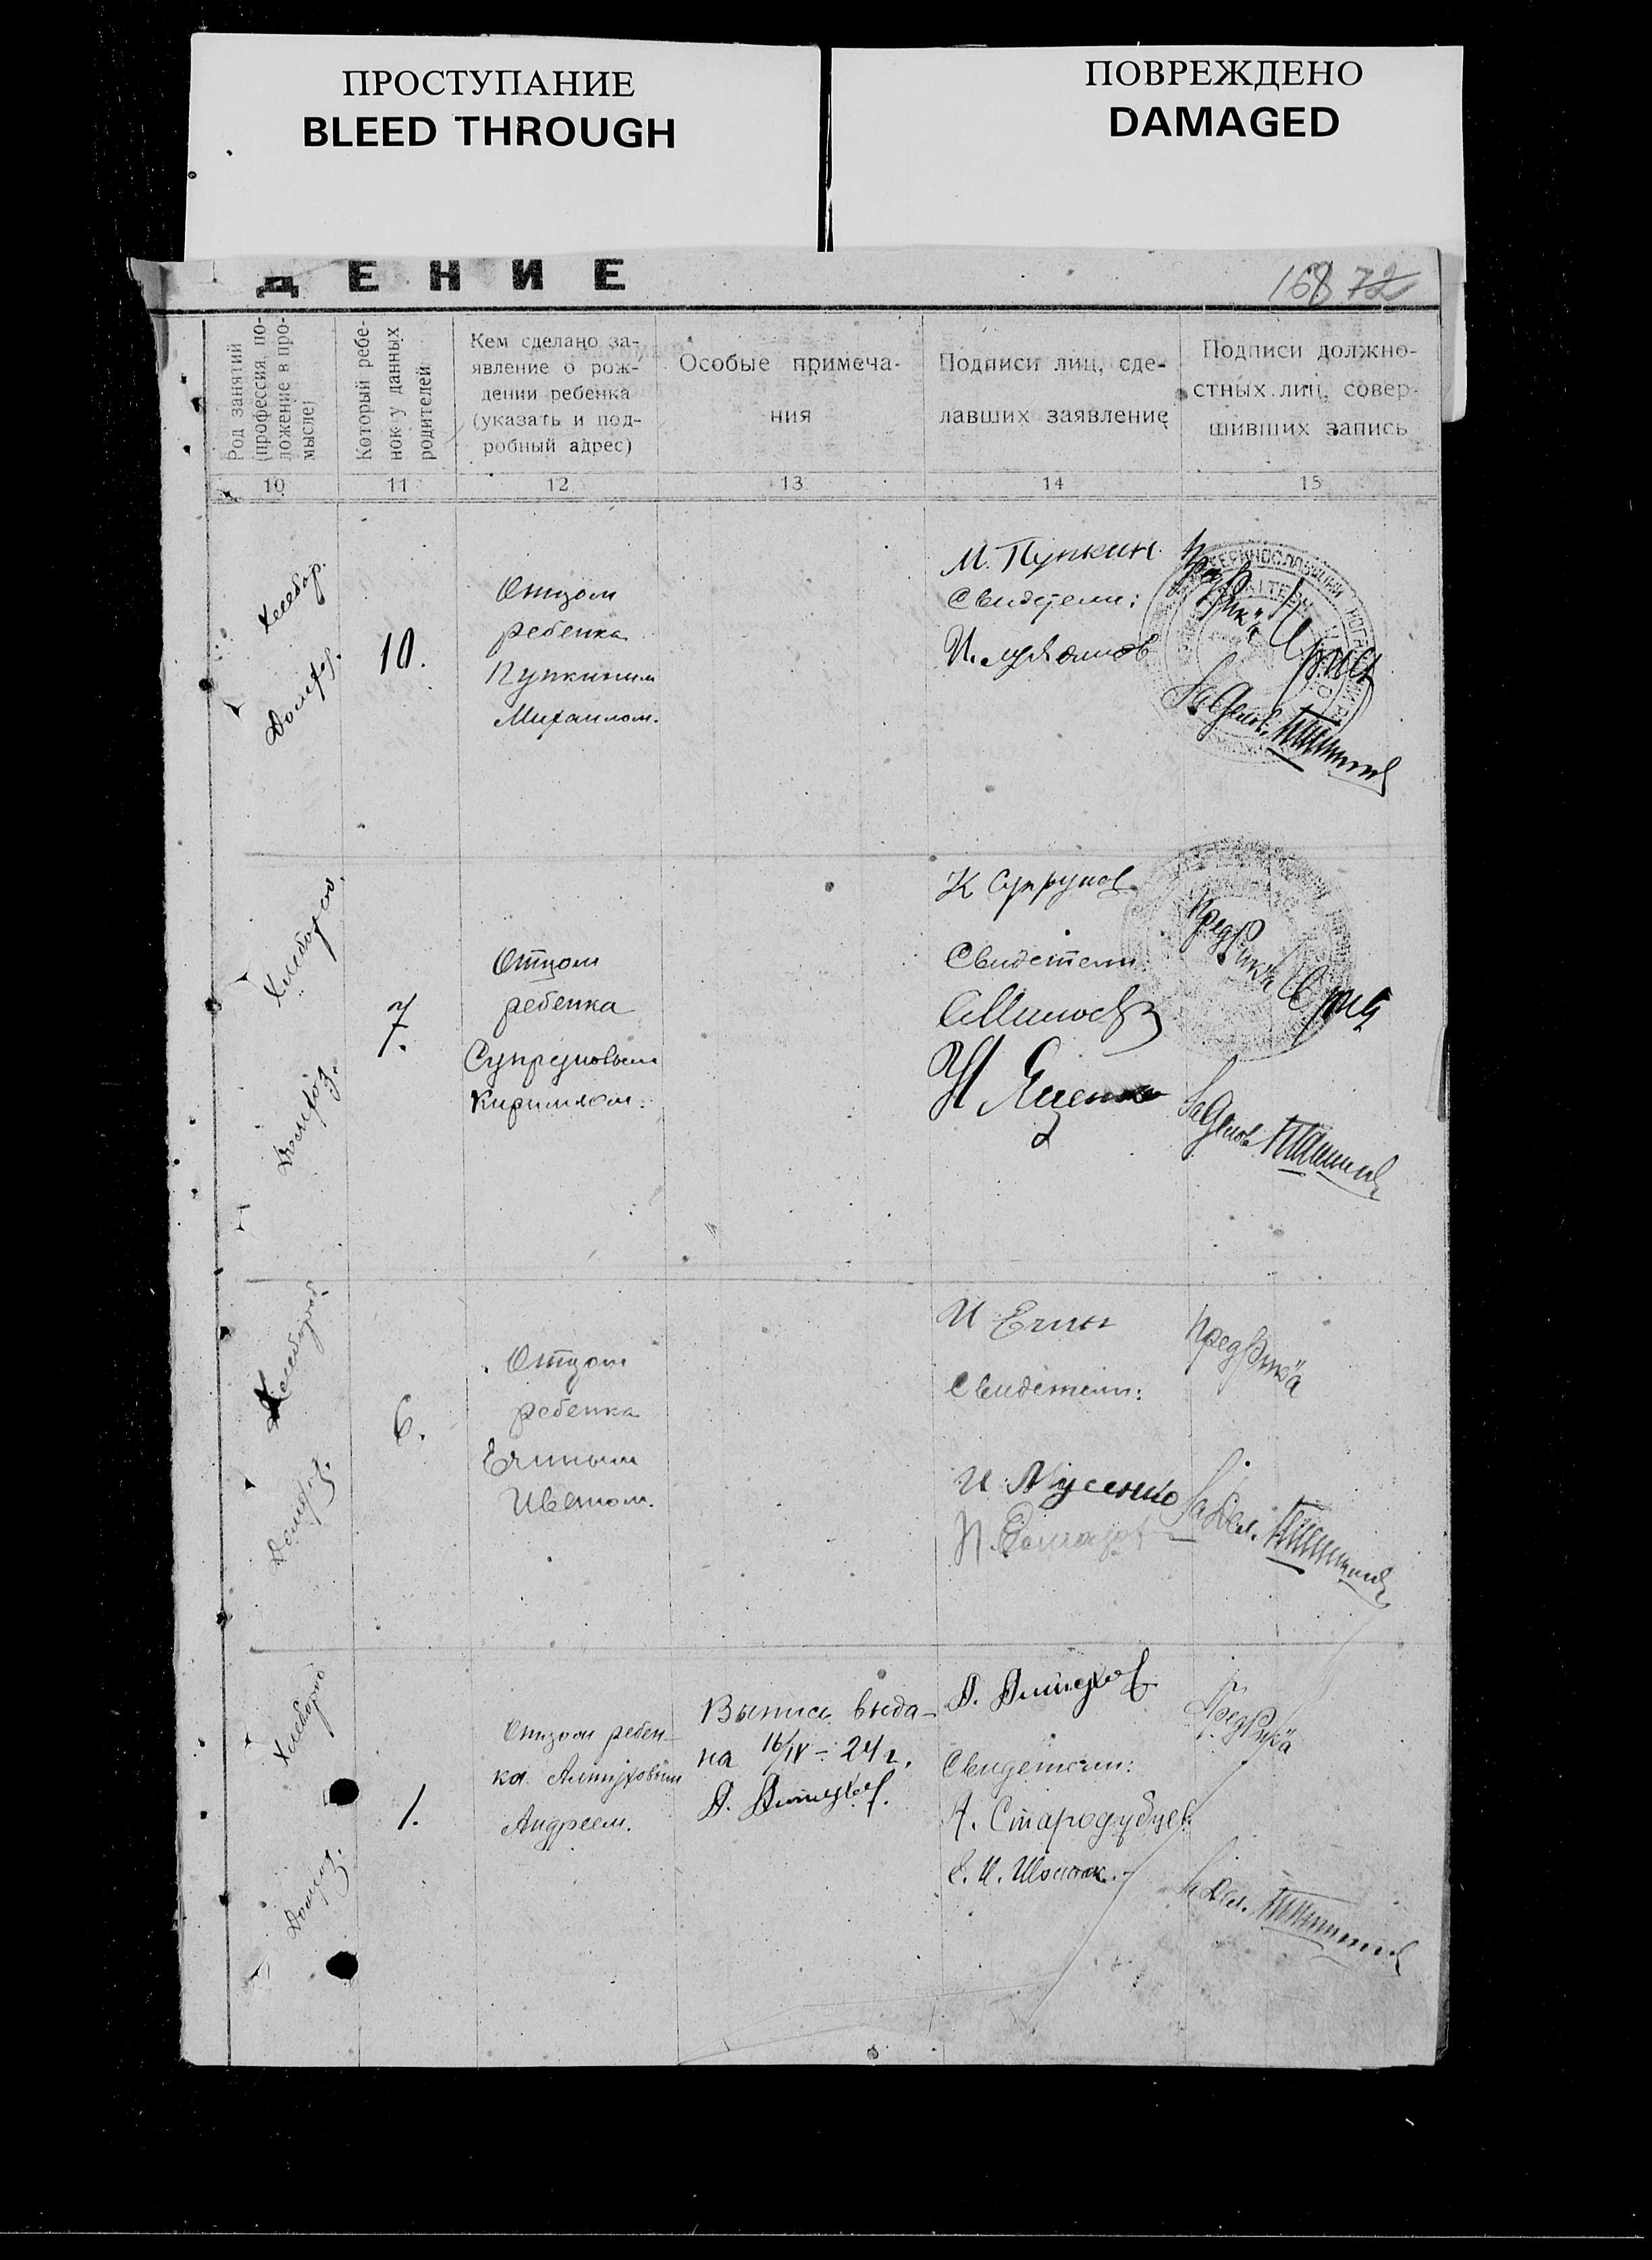 ПРОСТУПАНИЕ
BLEED THROUGH
ПОВРЕЖДЕНО
DAMAGED
ДЕНИЕ
168 72
Род занятий
(профессия, по-
ложение в про-
мысле)
Который ребе-
нок у данных
родителей
Кем сделано за-
явление о рож-
дении ребенка
(указать и под-
робный адрес)
Особые примеча-
ния
Подписи лиц, сде-
лавших заявление
Подписи должно-
стных лиц, совер-
шивших запись
10
11
12
13
14
15
Хлебор.
Домхоз.
10.
Отцом
ребенка
Пупкиним
Михаилом.
М. Пупкин
Свидетели:
Предрика
Хлебороб
Домхоз.
7.
Отцом
ребенка
Супруновым
Кирилом.
К Супрунов
Свидетели
Н Яценко
Предрика
Хлебороб
Домхоз.
6.
Отцом
ребенка
Ечиным
Иваном.
И Ечин
Свидетели:
И Мусенко
Предрика
Завдел.
Хлебороб
Домхоз.
1.
Отцом ребен-
ка Алтуховым
Андреем.
Выпись выда-
на 16/IV - 24 г.
А. Алтухов.
А. Алтухов
Свидетели:
А. Стародубцев
Е. И. Шостак.
Предрика
Завдел.